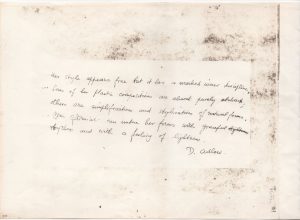 Her style appears free but it has a marked inner discipline.
Some of her plastic compositions are almost purely abstract,
others are simplification and stylization of natural forms.
can imbue her forms with graceful rhythm
and with a feeling of lightness
D. Adlow